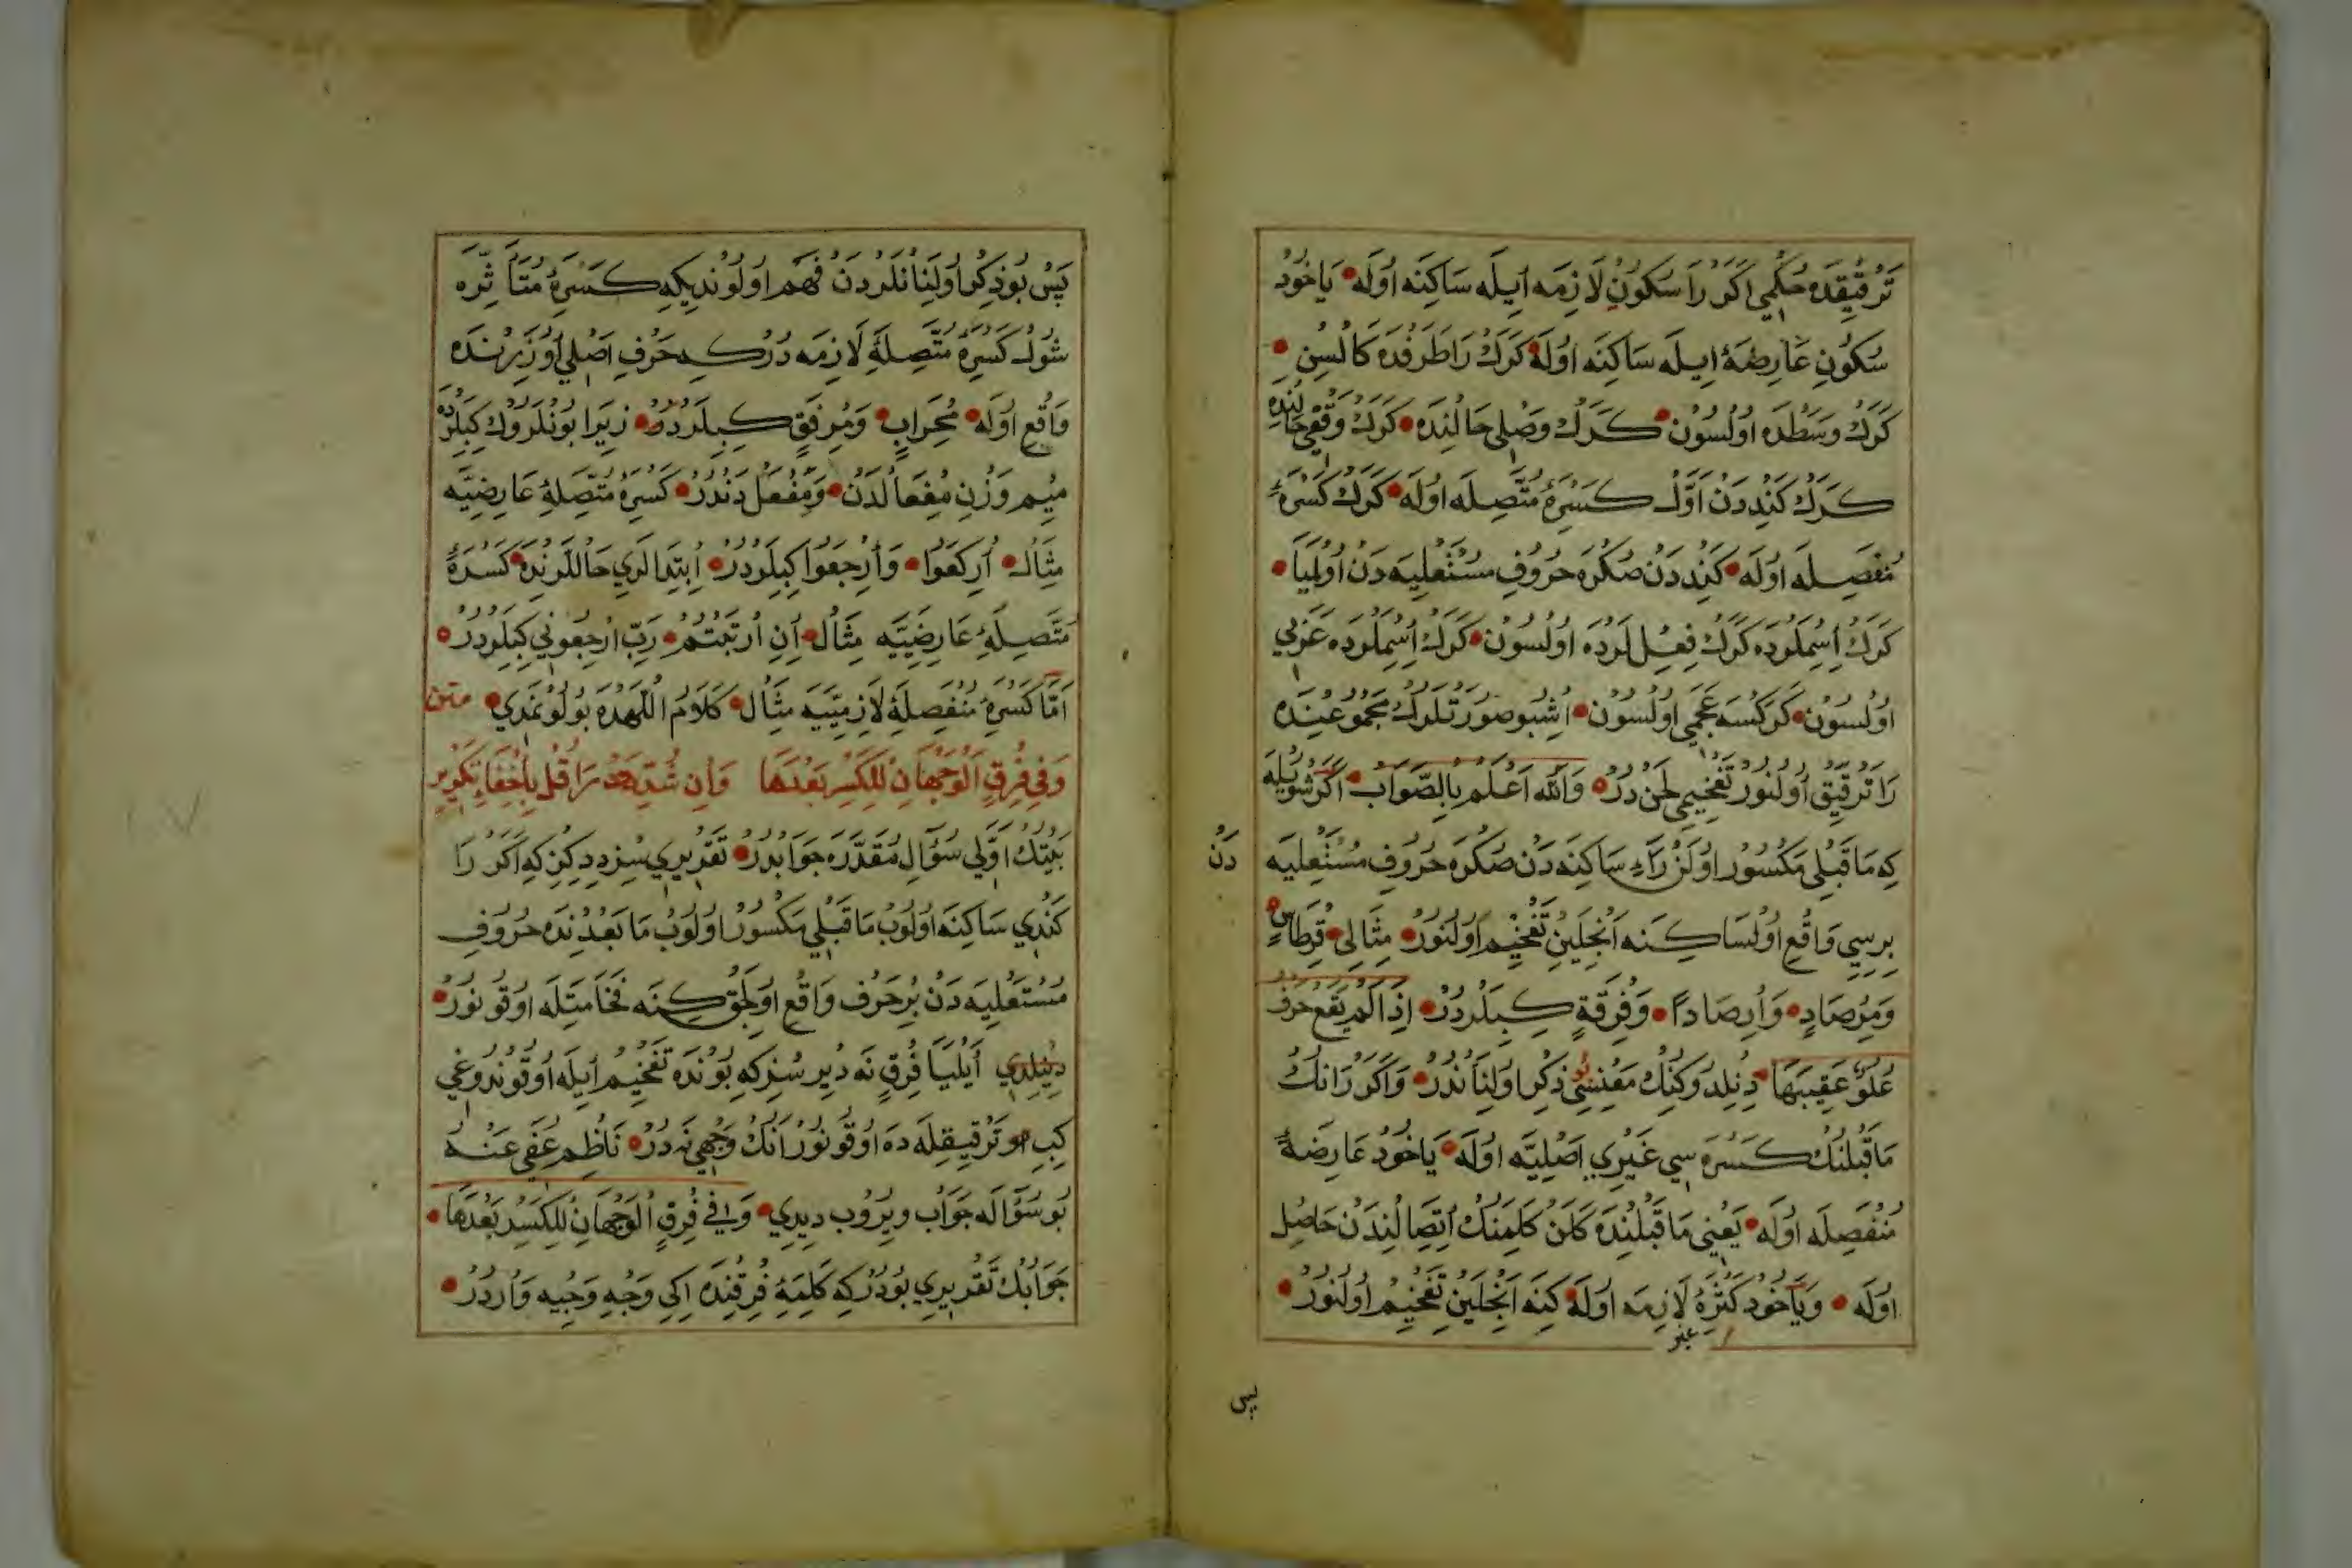 تَرْقِيقْدَه حُكْمِي اَكَرْ رَا سُكُونِ لَازِمَه اِيلَه سَاكِنَه اُولَه يَاخُودْ
سُكُونِ عَارِضَهٔ اِيلَه سَاكِنَه اُولَه كَرَكْ رَا طَرَفْدَه كَالْسِنِ
كَرَكْ وَسَطْدَه اُولْسُونْ كَرَكْ وَصْلِي حَالِنْدَه كَرَكْ وَقْفِي حَالِنْدَه
كَرَكْ كَنْدِدَنْ اَوَّلْ كَسْرَهٔ مُتَّصِلَه اُولَه كَرَكْ كَسْرَهٔ
مُنْفَصِلَه اُولَه كَنْدِدَنْ صُكْرَه حُرُوفِ مُسْتَعْلِيَه دَنْ اُولْمِيَا
كَرَكْ اِسْمِلَرْدَه كَرَكْ فِعْلِ لَرْدَه اُولْسُونْ كَرَكْ اِسْمِلَرْدَه عَرَبِي
اُولْسُونْ كَرَكْسَه عَجَمِي اُولْسُونْ اُشْبُو صُورَتْلَرُكْ مَجْمُوعِنْدَه
رَا تَرْقِيقْ اُولُنُورْ تَفْخِيمِي لَحْنْ دُرْ وَاللّٰه اَعْلَمْ بِالصَّوَابْ اَكَرْ شُويْلَه
كِه مَا قَبْلِي مَكْسُورْ اُولَنْ رَاءِ سَاكِنَه دَنْ صُكْرَه حُرُوفِ مُسْتَعْلِيَه دَنْ
بِرِسِي وَاقِعْ اُولْسَا كِنَه اَنْجِلَيِنْ تَفْخِيمْ اُولُنُورْ مِثَالِي قِرْطَاسٍ
وَمِرْصَادٍ وَاِرْصَادًا وَفِرْقَةٍ كِبِلَرْدُرْ اِذَا لَمْ يَقَعْ حَرْفُ
عُلُوٍّ عَقِيبَهَا دِنِلْدُوكِنُكْ مَعْنِسِي بُو ذِكْرْ اُولِنَانْدُرْ وَاَكَرْ رَانُكْ
مَا قَبْلِنُكْ كَسْرَه سِي غَيْرِي اَصْلِيَّه اُولَه يَاخُودْ عَارِضَهٔ
مُنْفَصِلَه اُولَه يَعْنِي مَا قَبْلِنْدَه كَلَنْ كَلِمَنُكْ اِتِّصَالِنْدَنْ حَاصِلْ
اُولَه وَيَاخُودْ كَسْرَهٔ غير لَازِمَه اُولَه كِنَه اَنْجِلَيِنْ تَفْخِيمْ اُولُنُورْ
پس
پَسْ بُو ذِكْرْ اُولِنَانْلَرْدَنْ فَهْمْ اُولُونْدِيكِه كَسْرَهٔ مُتَأَثِّرَه
شُولْ كَسْرَهٔ مُتَّصِلَهٔ لَازِمَه دُرْ كِه حَرْفِ اَصْلِي اُوزَرِنْدَه
وَاقِعْ اُولَه مِحْرَابٍ وَمِرْفَقٍ كِبِلَرْدُرْ زِيرَا بُونْلَرُكْ كِبِلَرْدَه
مِيمْ وَزْنِ مِفْعَالْدَنْ وَمِفْعَلْ دَنْدُرْ كَسْرَهٔ مُتَّصِلَهٔ عَارِضِيَّه
مِثَالْ اُرِكَعُوا وَاُرْجِعُوا كِبِلَرْدُرْ اِبْتِدَالَرِي حَالْلَرِنْدَه كَسْرَهٔ
مُتَّصِلَهٔ عَارِضِيَّه مِثَالْ اِنِ ارْتَبْتُمْ رَبِّ ارْجِعُونِي كِبِلَرْدُرْ
اَمَّا كَسْرَهٔ مُنْفَصِلَهٔ لَازِمِيَّه مِثَالْ كَلَامُ اللّٰهْدَه بُولُونْمَدِي متن
وَفِي فِرْقٍ الْوَجْهَانِ لِلْكَسْرِ بَعْدَهَا وَاِنْ شُدِّدَتْ رَا قُلْ بِاِخْفَاءِ تَكْرِيرٍ
بَيْتُكْ اَوَّلِي سُؤَالِ مُقَدَّرَه جَوَابْدُرْ تَقْرِيرِي سِزْ دِدِكِزْ كِه اَكَرْ رَا
كَنْدِي سَاكِنَه اُولُوبْ مَا قَبْلِي مَكْسُورْ اُولُوبْ مَا بَعْدِنْدَه حُرُوفِ
مُسْتَعْلِيَه دَنْ بِرْ حَرْفْ وَاقِعْ اُولِجَقْ كِنَه فَخَامَتِلَه اُوقُونُورْ
دِنِلْدِي اَيْلَيَا فِرْقٍ نَه دِيرْسُزْ كِه بُونْدَه تَفْخِيمْ اِيلَه اُوقُونْدُوغِي
كِبِ تَرْقِيقِلَه دَه اُوقُونُورْ اَنُكْ وَجْهِي نَه دُرْ نَاظِمْ عُفِيَ عَنْهُ
بُو سُؤَالَه جَوَابْ وِيرُوبْ دِيدِي وَفِي فِرْقٍ الْوَجْهَانِ لِلْكَسْرِ بَعْدَهَا
جَوَابُكْ تَقْرِيرِي بُودُرْ كِه كَلِمَهٔ فِرْقِنْدَه اِكِي وَجْهِ وَجِيه وَارْدُرْ